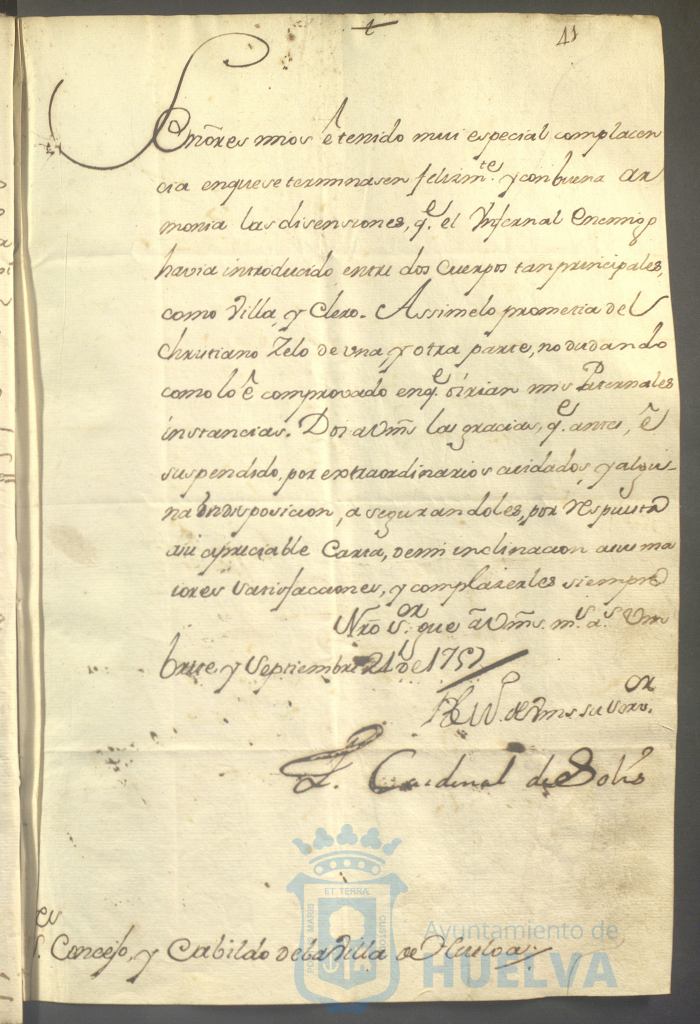 41
Señores mios ê tenido mui especial complacen
cia en que se terminasen felizmte. y con buena ar
monia las disensiones, qe. el Ynfernal Enemigo
havia introducido entre dos Cuerpos tan principales,
como Villa, y Clero. Assi me lo prometia del
Christiano Zelo de una y otra parte, no dudando
como lo ê comprovado en qe. oirian mis Paternales
instancias. Doi a Vms. las gracias, qe. antes, ê
suspendido, por extraordinarios cuidados, y algu-
na indisposicion, asegurandoles, por respuesta
a su apreciable Carta, de mi inclinacion a sus ma
iores satisfacciones, y complazerles siempre
Nrô Sor. gue â Vms. ms. as. Um
brete y Septiembre 21 de 1757
de Vms su Servor.
F. Cardenal de Solis
S.es Concejo, y Cabildo de la Villa de Huelva.
PORTUS MARIS ET TERRÆ CUSTODIA
Ayuntamiento de
HUELVA